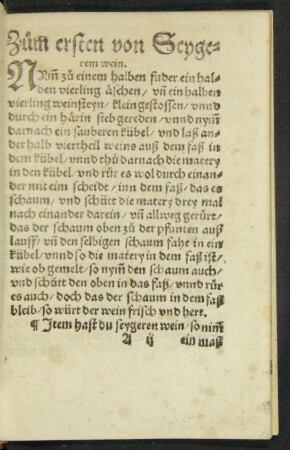 Zům ersten von Seyge-
rem wein.
NYm̄ zů einem halben fůder ein hal-
ben vierling äschen / vn̄ ein halben
vierling weinsteyn / klein gestossen / vnnd
durch ein härin sieb gereden / vnnd nym̄
darnach ein sauberen kübel / vnd laß an-
derhalb viertheil weins auß dem faß in
dem kübel / vnnd thů darnach die matery
in den kübel / vnd rür es wol durch einan-
der mit eim scheidt / inn dem faß / das es
schaum / vnd schütt die matery drey mal
nach einander darein / vn̄ allweg gerürt /
das der schaum oben zů der pfunten auß
lauff / vn̄ den selbigen schaum fahe in ein
kübel / vnnd so die matery in dem faß ist /
wie ob gemelt / so nym̄ den schaum auch /
vnd schütt den oben in das faß / vnnd rür
es auch / doch das der schaum in dem faß
bleib / so würt der wein frisch vnd hert.
¶ Item hast du seygeren wein / so nim̄
A ij ein maß